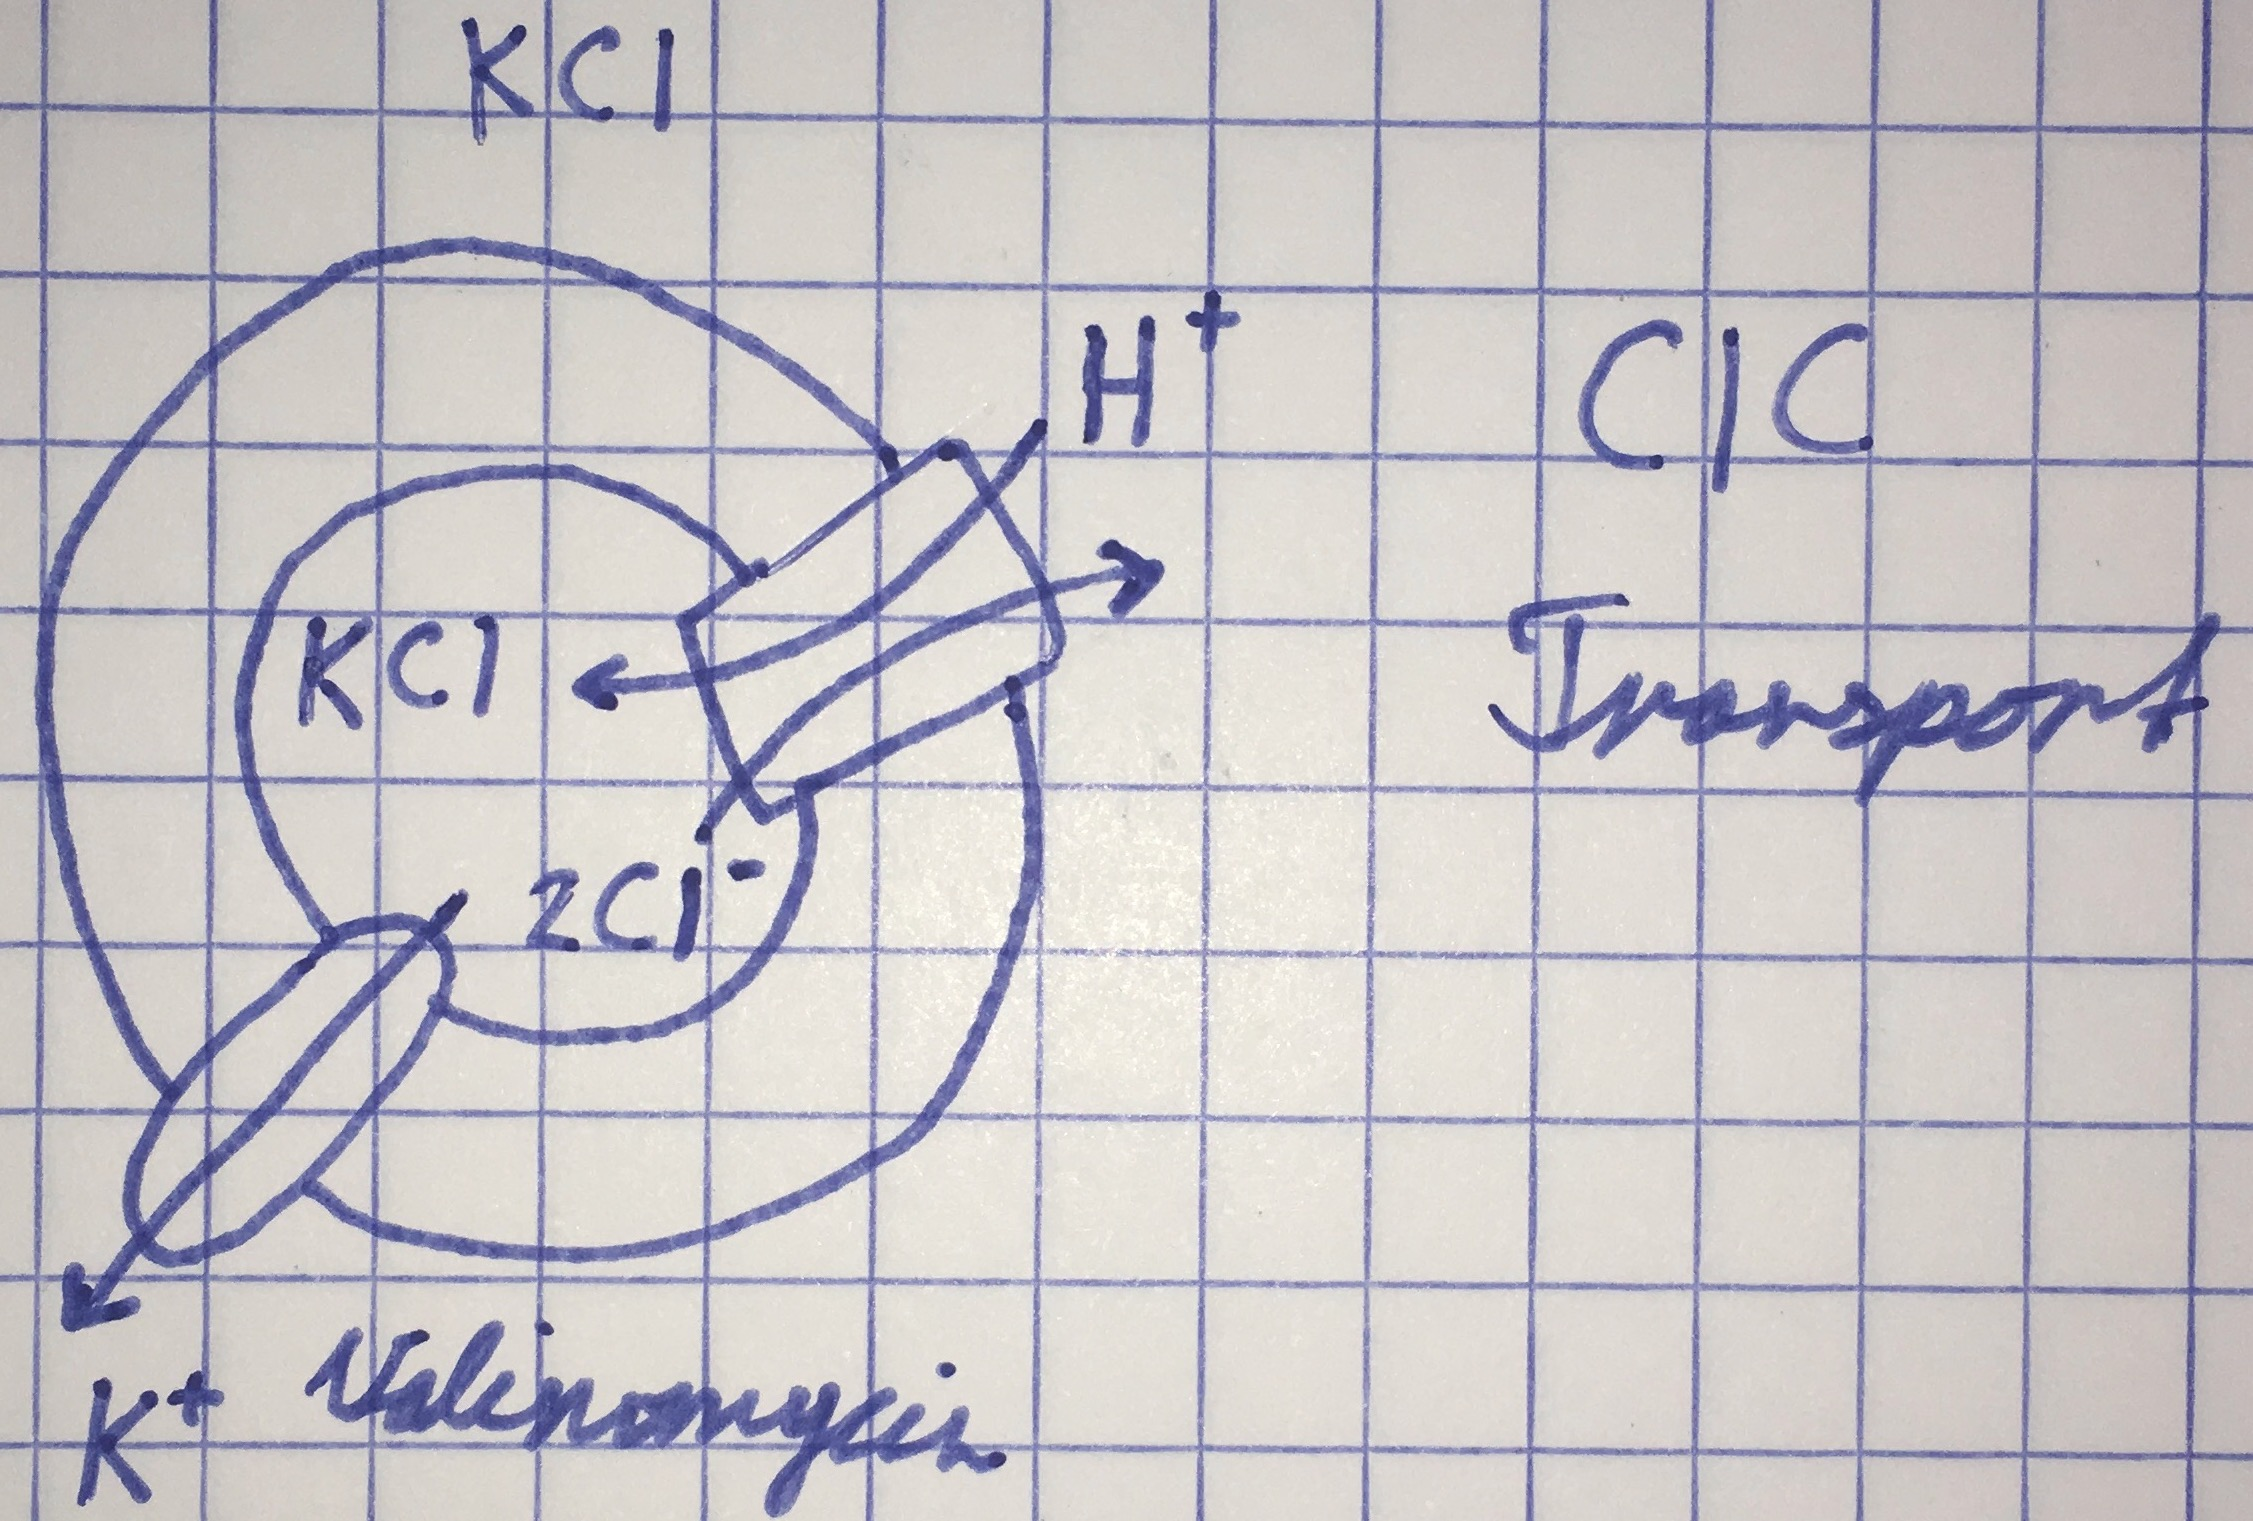 KCl
H⁺
ClC
Transport
KCl
2Cl⁻
K⁺ Valinomycin